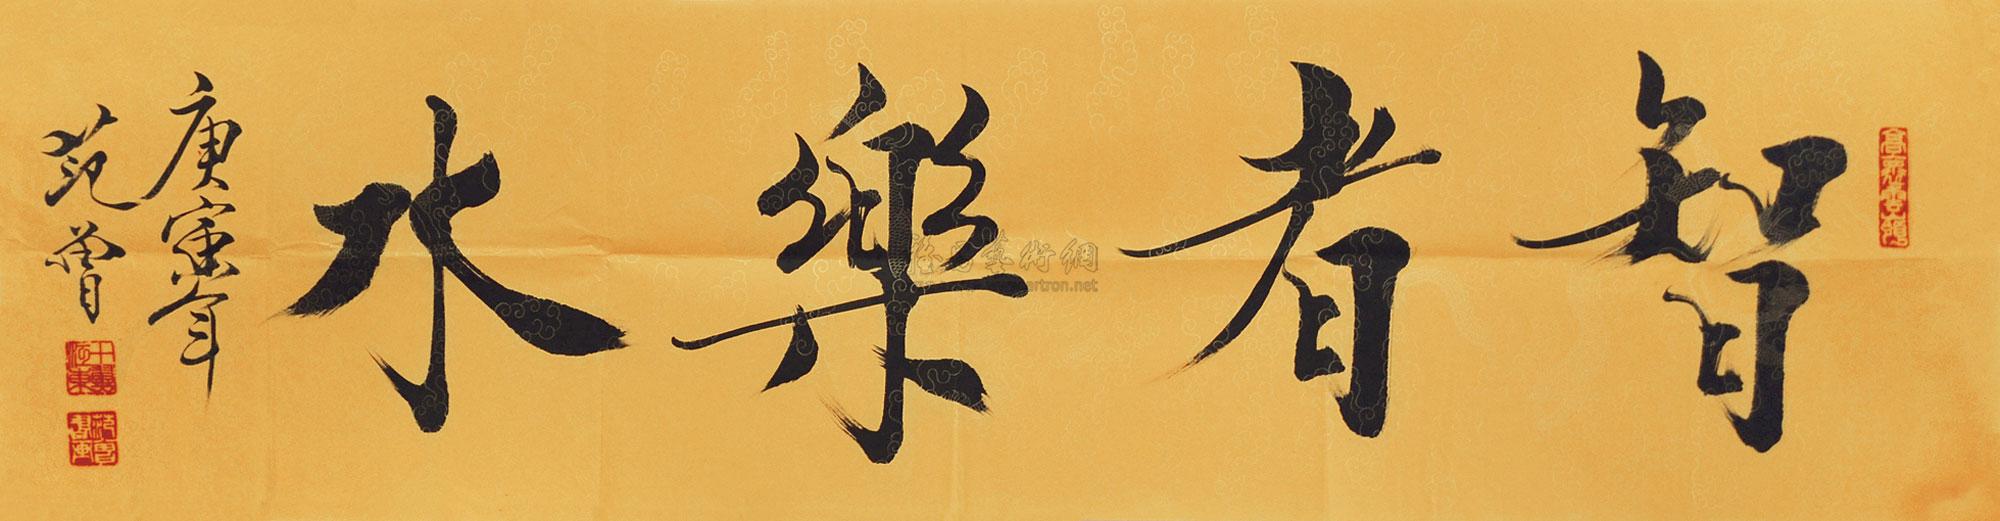 智者樂水
庚寅年
范曾
雅昌藝術網
artron.net